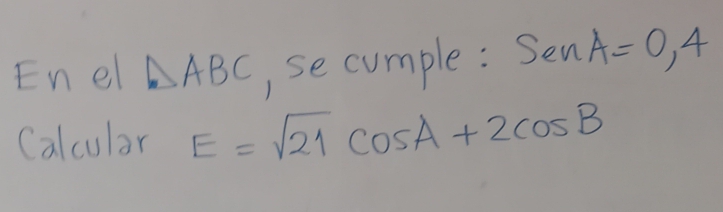 En el ⊿ABC, se cumple: SenA = 0,4
Calcular E = √21 cosA + 2cosB